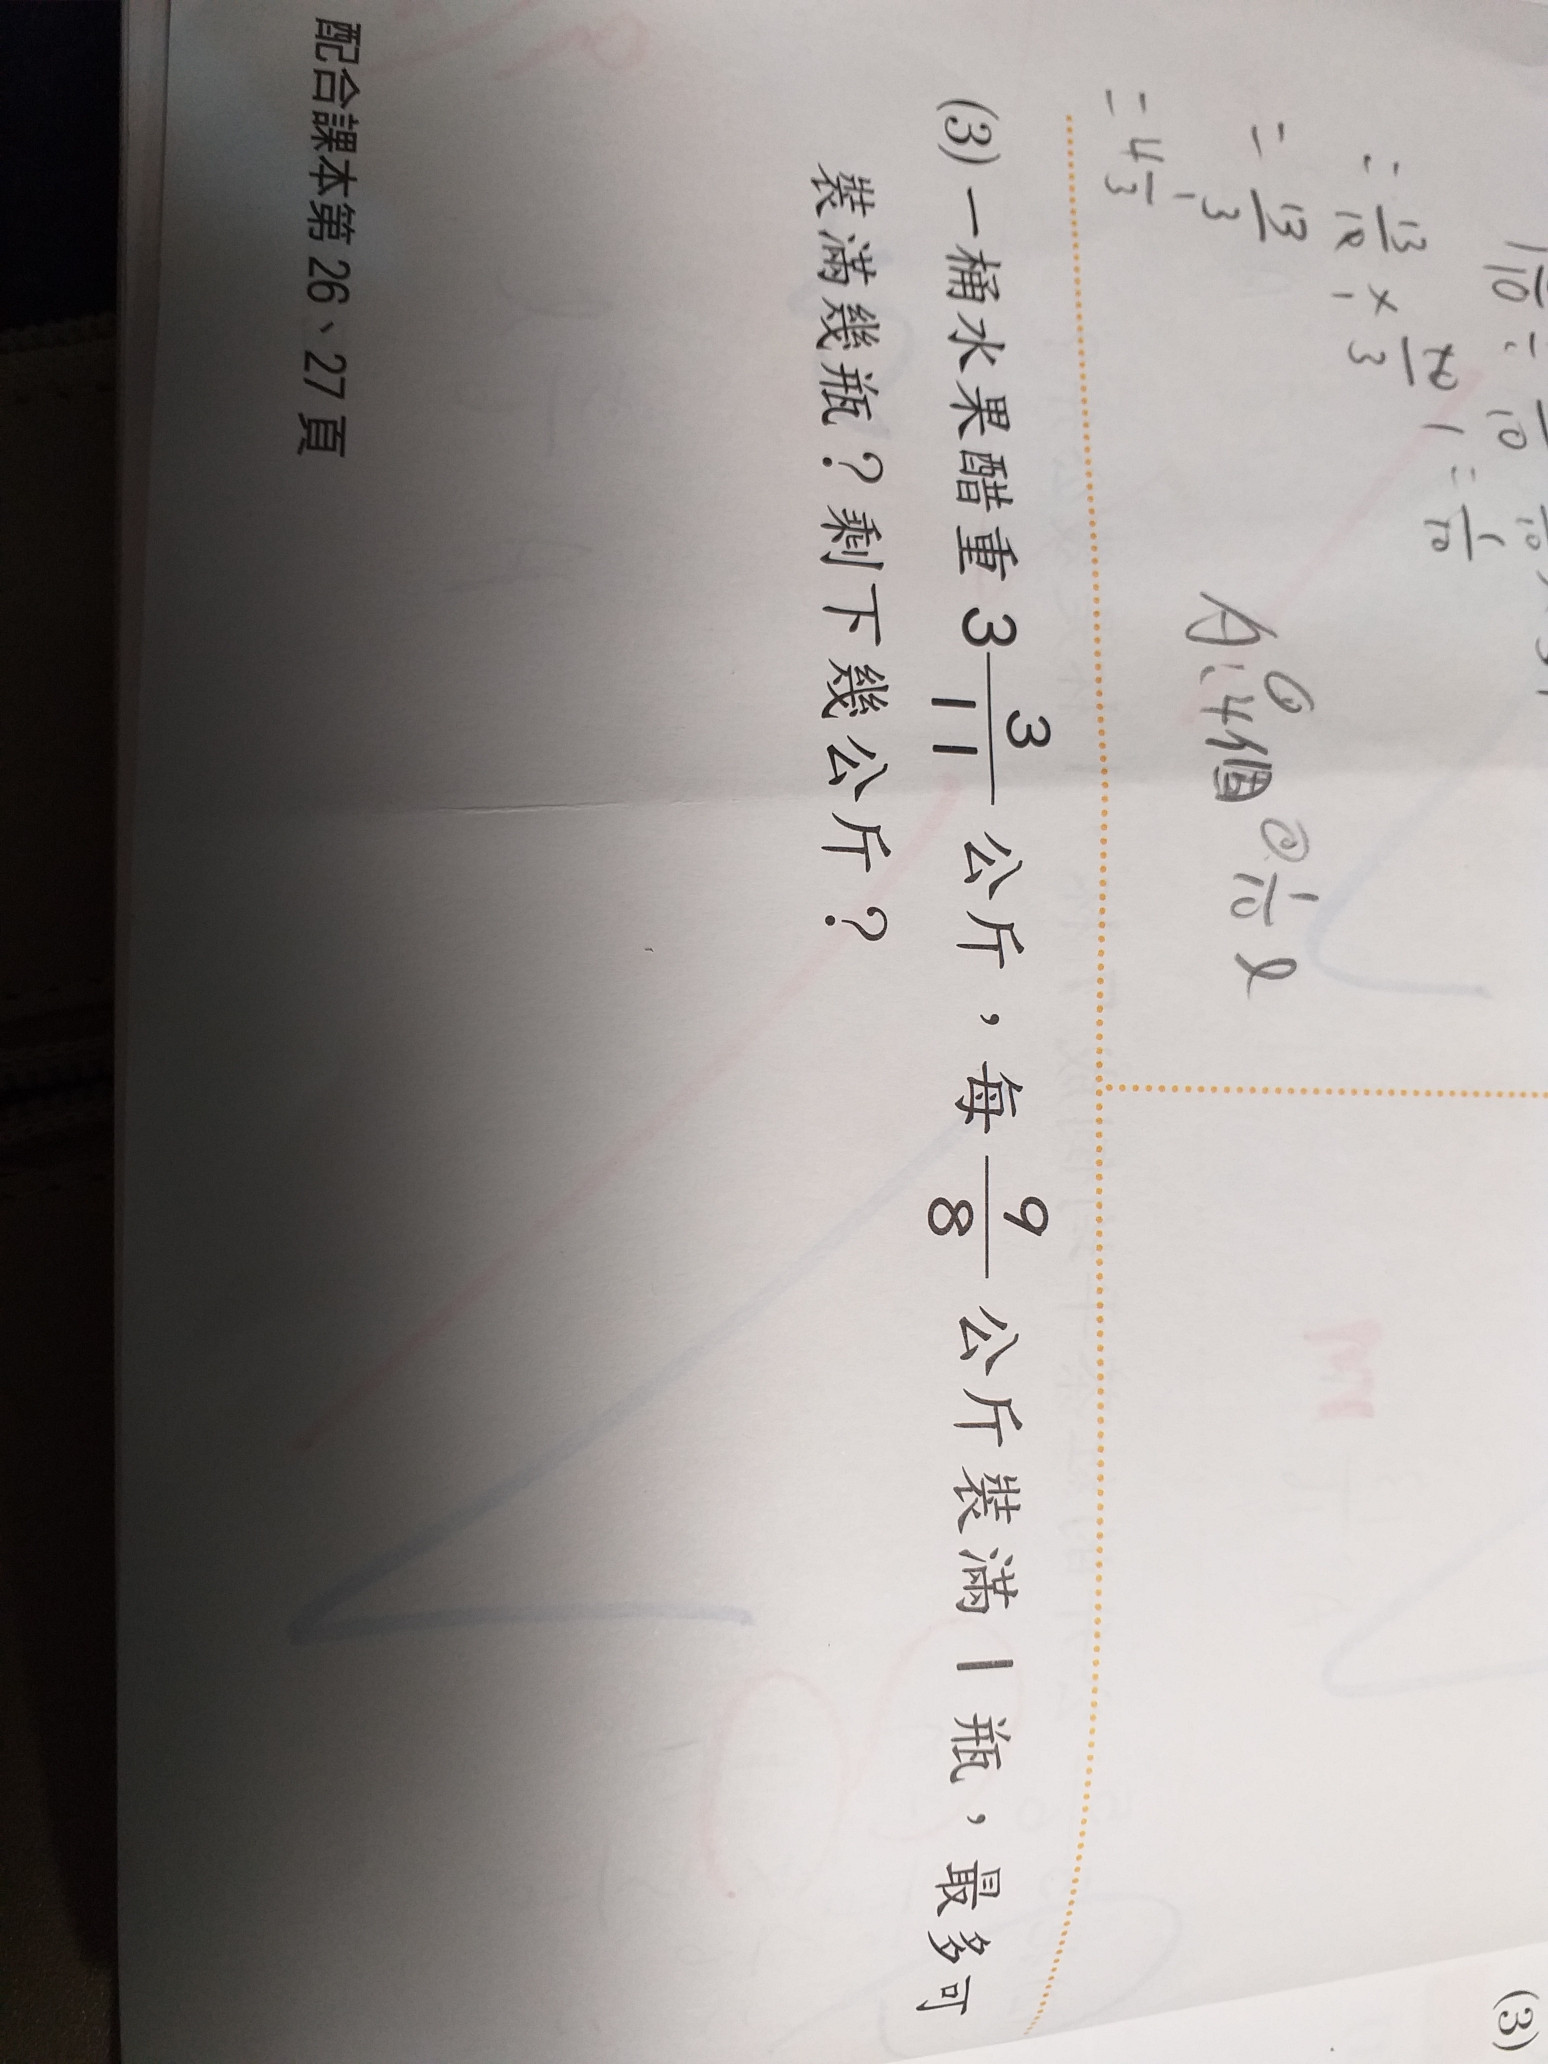 = 13/10 × 10/3 1 = 1/10
= 13/3
= 4 1/3
A: ①4個 ② 1/10 l
(3) 一桶水果醋重 3 3/11 公斤，每 9/8 公斤裝滿 1 瓶，最多可
裝滿幾瓶？剩下幾公斤？
配合課本第 26、27 頁
(3)